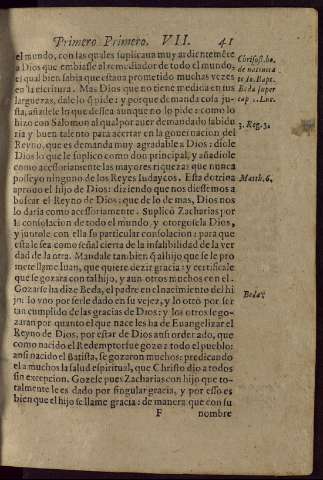 Primero Primero. VII. 41
el mundo, con las quales suplicaua muy ardientemẽte
a Dios que embiasse al remediador de todo el mundo,
el qual bien sabia que estaua prometido muchas vezes
en la escritura. Mas Dios que no tiene medida en sus
larguezas, dale lo q̃ pide: y porque demanda cosa ju-
sta, añadele lo que dessea aunque no lo pide: como lo
hizo con Salomon al qual por auer demandado sabidu
ria y buen talento para acertar en la gouernacion del
Reyno, que es demanda muy agradable a Dios: diole
Dios lo que le suplico como don principal, y añadiole
como accessoriamente las mayores riquezas que nunca
posseyo ninguno de los Reyes Iudaycos. Esta dotrina
aprouo el hijo de Dios: diziendo que nos diessemos a
buscar el Reyno de Dios: que de lo de mas, Dios nos
lo daria como accessoriamente. Suplicò Zacharias por
la consolacion de todo el mundo y otorgosela Dios,
y juntole con ella su particular consolacion: para que
esta le sea como señal cierta de la infalibilidad de la ver
dad de la otra. Mandale tambien q̃ al hijo que se le pro
mete llame Iuan, que quiere dezir gracia: y certificale
que se gozara con tal hijo, y aun otros muchos con el.
Gozarse ha dize Beda, el padre en el nacimiento del hi
jo: lo vno por serle dado en su vejez, y lo otro por ser
tan cumplido de las gracias de Dios: y los otros se go-
zaran por quanto el que nace les ha de Euangelizar el
Reyno de Dios, por estar de Dios ansi ordenado, que
como nacido el Redemptor se goze todo el pueblo:
ansi nacido el Batista, se gozaron muchos: predicando
el a muchos la salud espiritual, que Christo dio a todos
sin excepcion. Gozese pues Zacharias con hijo que to-
talmente le es dado por singular gracia, y por esso es
bien que el hijo se llame gracia: de manera que con su
F nombre
Chrisost. ho.
de natiuita
te Io. Bapt.
Beda super
cap. 1. Luc.
3. Reg. 3.
Matth. 6.
Beda